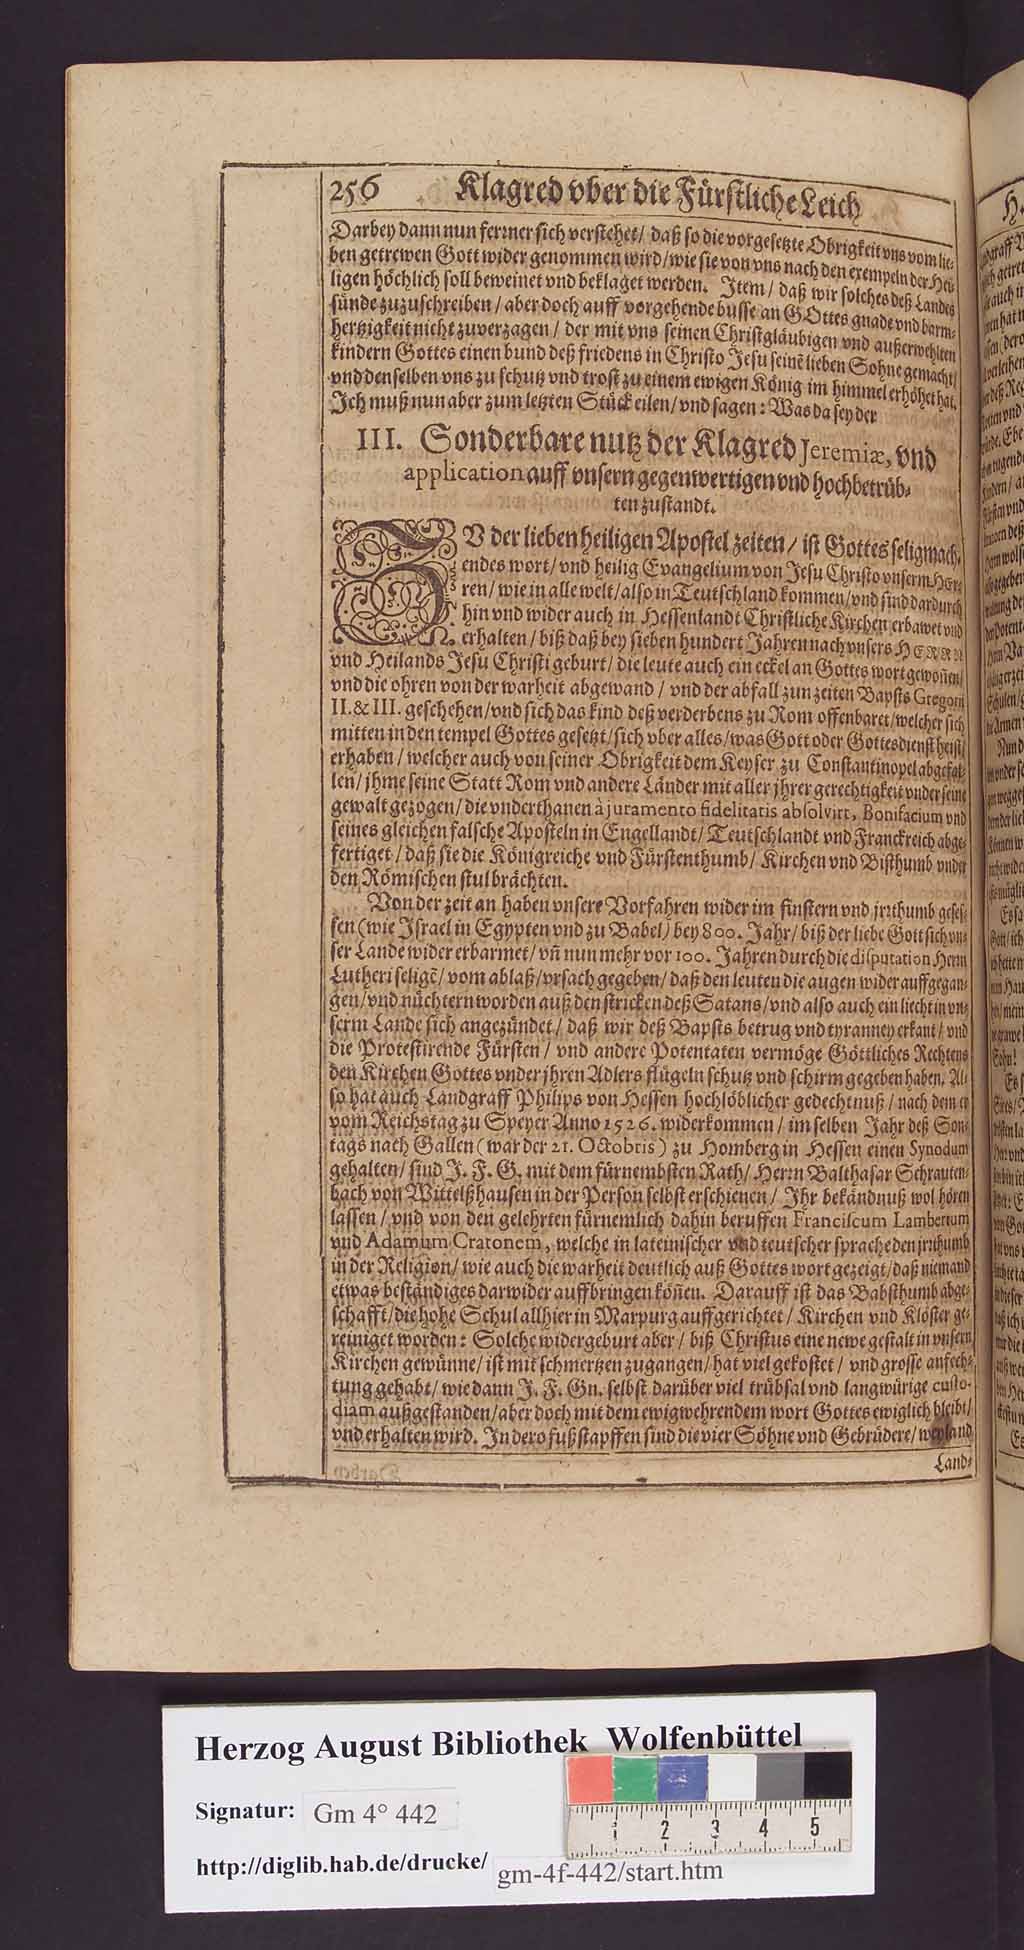 256 Klagred vber die Fürstliche Leich
Darbey dann nun ferrner sich verstehet / daß so die vorgesetzte Obrigkeit vns vom lie-
ben getrewen Gott wider genommen wird / wie sie von vns nach den exempeln der Hei-
ligen höchlich soll beweinet vnd beklaget werden. Item / daß wir solches deß Landes
sünde zuzuschreiben / aber doch auff vorgehende busse an GOttes gnade vnd barm-
hertzigkeit nicht zuverzagen / der mit vns seinen Christgläubigen vnd außerwehlten
kindern Gottes einen bund deß friedens in Christo Jesu seinē lieben Sohne gemacht /
vnd denselben vns zu schutz vnd trost zu einem ewigen König im himmel erhöhet hat.
Ich muß nun aber zum letzten Stück eilen / vnd sagen: Was da sey der
III. Sonderbare nutz der Klagred Jeremiæ, vnd
application auff vnsern gegenwertigen vnd hochbetrüb-
ten zustandt.
ZV der lieben heiligen Apostel zeiten / ist Gottes seligmach-
endes wort / vnd heilig Evangelium von Jesu Christo vnserm HEr-
ren / wie in alle welt / also in Teutschland kommen / vnd sind dardurch
hin vnd wider auch in Hessenlandt Christliche Kirchen erbawet vnd
erhalten / biß daß bey sieben hundert Jahren nach vnsers HERRN
vnd Heilands Jesu Christi geburt / die leute auch ein eckel an Gottes wort gewoñen /
vnd die ohren von der warheit abgewand / vnd der abfall zun zeiten Bapsts Gregorii
II. & III. geschehen / vnd sich das kind deß verderbens zu Rom offenbaret / welcher sich
mitten in den tempel Gottes gesetzt / sich vber alles / was Gott oder Gottesdienst heist /
erhaben / welcher auch von seiner Obrigkeit dem Keyser zu Constantinopel abgefal-
len / jhme seine Statt Rom vnd andere Länder mit aller jhrer gerechtigkeit vnder seine
gewalt gezogen / die vnderthanen à juramento fidelitatis absolvirt, Bonifacium vnd
seines gleichen falsche Aposteln in Engellandt / Teutschlandt vnd Franckreich abge-
fertiget / daß sie die Königreiche vnd Fürstenthumb / Kirchen vnd Bisthumb vnder
den Römischen stul brächten.
Von der zeit an haben vnsere Vorfahren wider im finstern vnd jrrthumb geses-
sen (wie Israel in Egypten vnd zu Babel) bey 800. Jahr / biß der liebe Gott sich vn-
ser Lande wider erbarmet / vñ nun mehr vor 100. Jahren durch die disputation Herrn
Lutheri seligē / vom ablaß / vrsach gegeben / daß den leuten die augen wider auffgegan-
gen / vnd nüchtern worden auß den stricken deß Satans / vnd also auch ein liecht in vn-
serm Lande sich angezündet / daß wir deß Bapsts betrug vnd tyranney erkant / vnd
die Protestirende Fürsten / vnd andere Potentaten vermöge Göttliches Rechtens
den Kirchen Gottes vnder jhren Adlers flügeln schutz vnd schirm gegeben haben. Al-
so hat auch Landgraff Philips von Hessen hochlöblicher gedechtnuß / nach dem er
vom Reichstag zu Speyer Anno 1526. widerkommen / im selben Jahr deß Son-
tags nach Gallen (war der 21. Octobris) zu Homberg in Hessen einen Synodum
gehalten / sind J. F. G. mit dem fürnembsten Rath / Herrn Balthasar Schrauten-
bach von Wittelßhausen in der Person selbst erschienen / Ihr bekändnuß wol hören
lassen / vnd von den gelehrten fürnemlich dahin beruffen Franciscum Lambertum
vnd Adamum Cratonem, welche in lateinischer vnd teutscher sprache den jrrthumb
in der Religion / wie auch die warheit deutlich auß Gottes wort gezeigt / daß niemand
etwas beständiges darwider auffbringen köñen. Darauff ist das Babsthumb abge-
schafft / die hohe Schul allhier in Marpurg auffgerichtet / Kirchen vnd Klöster ge-
reiniget worden: Solche widergeburt aber / biß Christus eine newe gestalt in vnsern
Kirchen gewünne / ist mit schmertzen zugangen / hat viel gekostet / vnd grosse anfech-
tung gehabt / wie dann J. F. Gn. selbst darüber viel trübsal vnd langwürige custo-
diam außgestanden / aber doch mit dem ewigwehrendem wort Gottes ewiglich bleibt /
vnd erhalten wird. In dero fußstapffen sind die vier Söhne vnd Gebrüdere / weyland
Land-
Herzog August Bibliothek Wolfenbüttel
Signatur: Gm 4° 442
http://diglib.hab.de/drucke/ gm-4f-442/start.htm
1 2 3 4 5